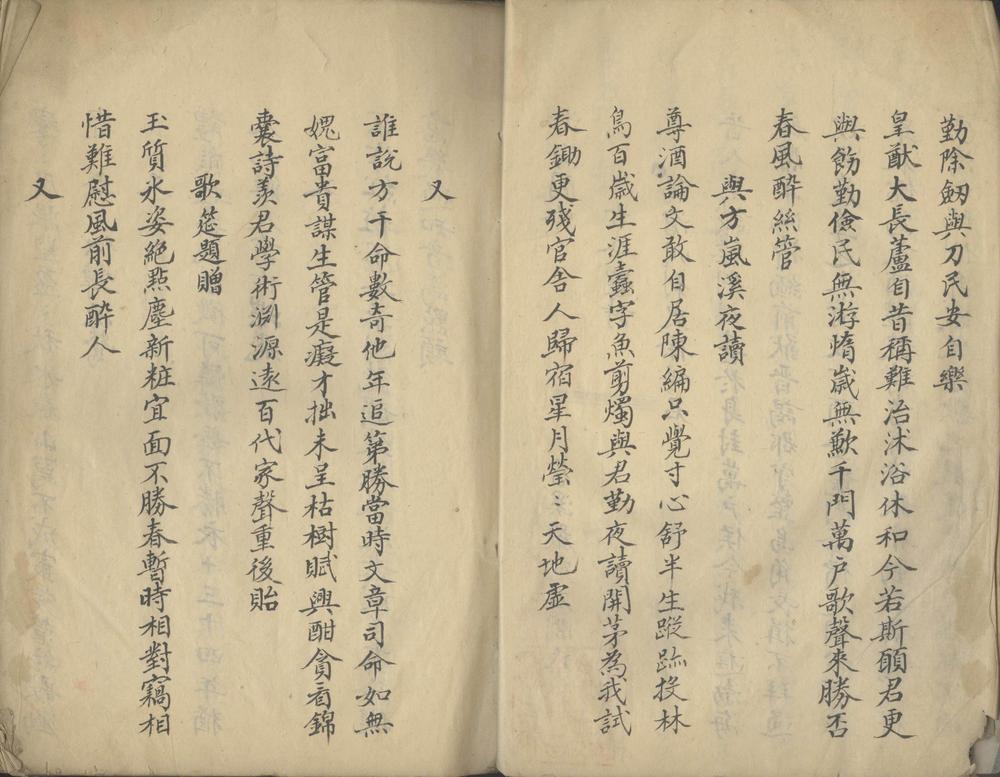 勤除劒與刀民安自樂
皇猷大長蘆自昔稱難治沭浴休和今若斯願君更
與飭勤儉民無游惰歲無歉千門萬戶歌聲來勝否
春風醉絲管
與方嵐溪夜讀
尊酒論文敢自居陳編只覺寸心舒半生蹤跡投林
鳥百歲生涯蠹字魚剪燭與君勤夜讀開茅為我試
春鋤更殘官舍人歸宿星月瑩天地虛
又
誰說方干命數奇他年追第勝當時文章司命如無
媿富貴謀生管是癡才拙未呈枯樹賦興酣貪看錦
囊詩羨君學術淵源遠百代家聲重後貽
歌筵題贈
玉質氷姿絕點塵新粧宜面不勝春暫時相對竊相
惜難慰風前長醉人
又